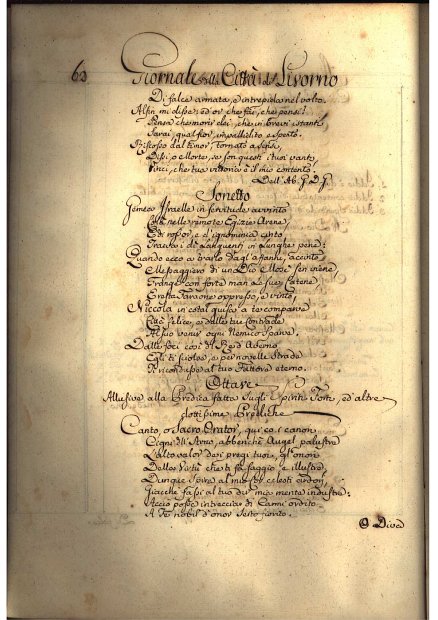 63
Giornale di Città di Livorno
Di falce armata, e intrepida nel volto.
Alfin mi disse: ed or che fai, che pensi?
Pensa che morir dei, che in brevi istanti,
Sarai, qual fior, impallidito e spento.
Riscosso dal timor, tornato a sensi,
Dissi, o Morte, se son questi i tuoi vanti,
Vinci, che tua vittoria è il mio contento.
Dell' Ab. P. D. P.
Sonetto
Gemea Israelle in servitude avvinto
Là nelle remote Egizie Arene,
E di rossor, e d'ignominia cinto
Traeva i dì languenti in lunghe pene:
Quando ecco a trarlo dagl'affanni, accinto
Messaggiero di un Dio Mosè sen viene,
Frange con forte man le sue Catene,
E resta Faraone oppresso, e vinto
Niccola in cotal guisa a te comparve
Città felice, e dalle tue Contrade
Al suo venir ogni Nemico sparve.
Dalle foci così di Averno
Egli ti sciolse, e per novelle Strade
Ti ricondusse al tuo Fattore eterno.
Ottave
Allusive alla Predica fatta sugli Spiriti Forti, ed altre
dottissime Prediche
Canto, o Sacro Orator, qui coi canori
Cigni dell'Arno, abbenchè Augel palustre
L'alto valor dei pregi tuoi, gl'onori
Della Virtù che tì fa saggio, e illustre,
Dunque spira al mio cor celesti ardori,
Giacchè fassi al tuo dir mia mente industre:
Acciò possa intrecciar di Carmi ordito
A Te nobil d'onor Serto fiorito.
Diva